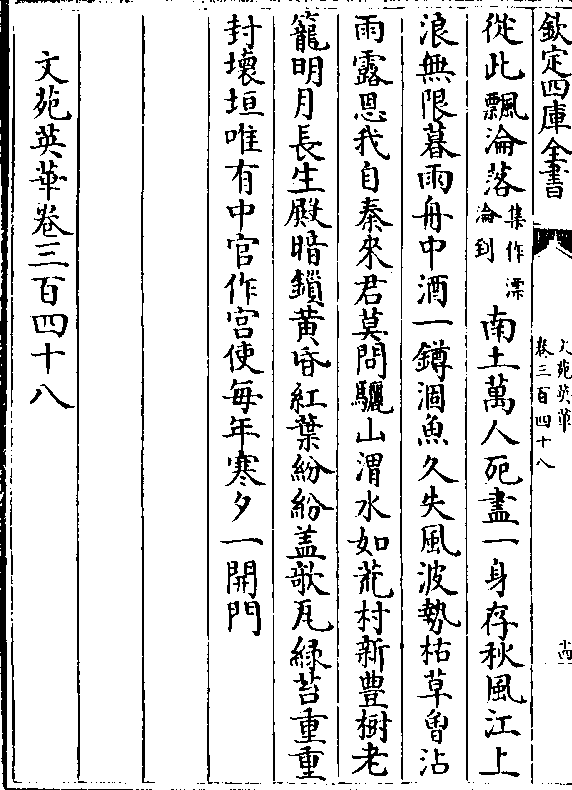 欽定四庫全書
文苑英華
卷三百四十八
從此飄淪落集作漂淪到南土萬人死盡一身存秋風江上
浪無限暮雨舟中酒一鐏涸魚久失風波勢枯草曾沾
雨露恩我自秦來君莫問驪山渭水如荒村新豐樹老
籠明月長生殿暗鎖黃昏紅葉紛紛盖欹瓦綠苔重重
封壞垣唯有中官作宮使每年寒夕一開門
文苑英華卷三百四十八